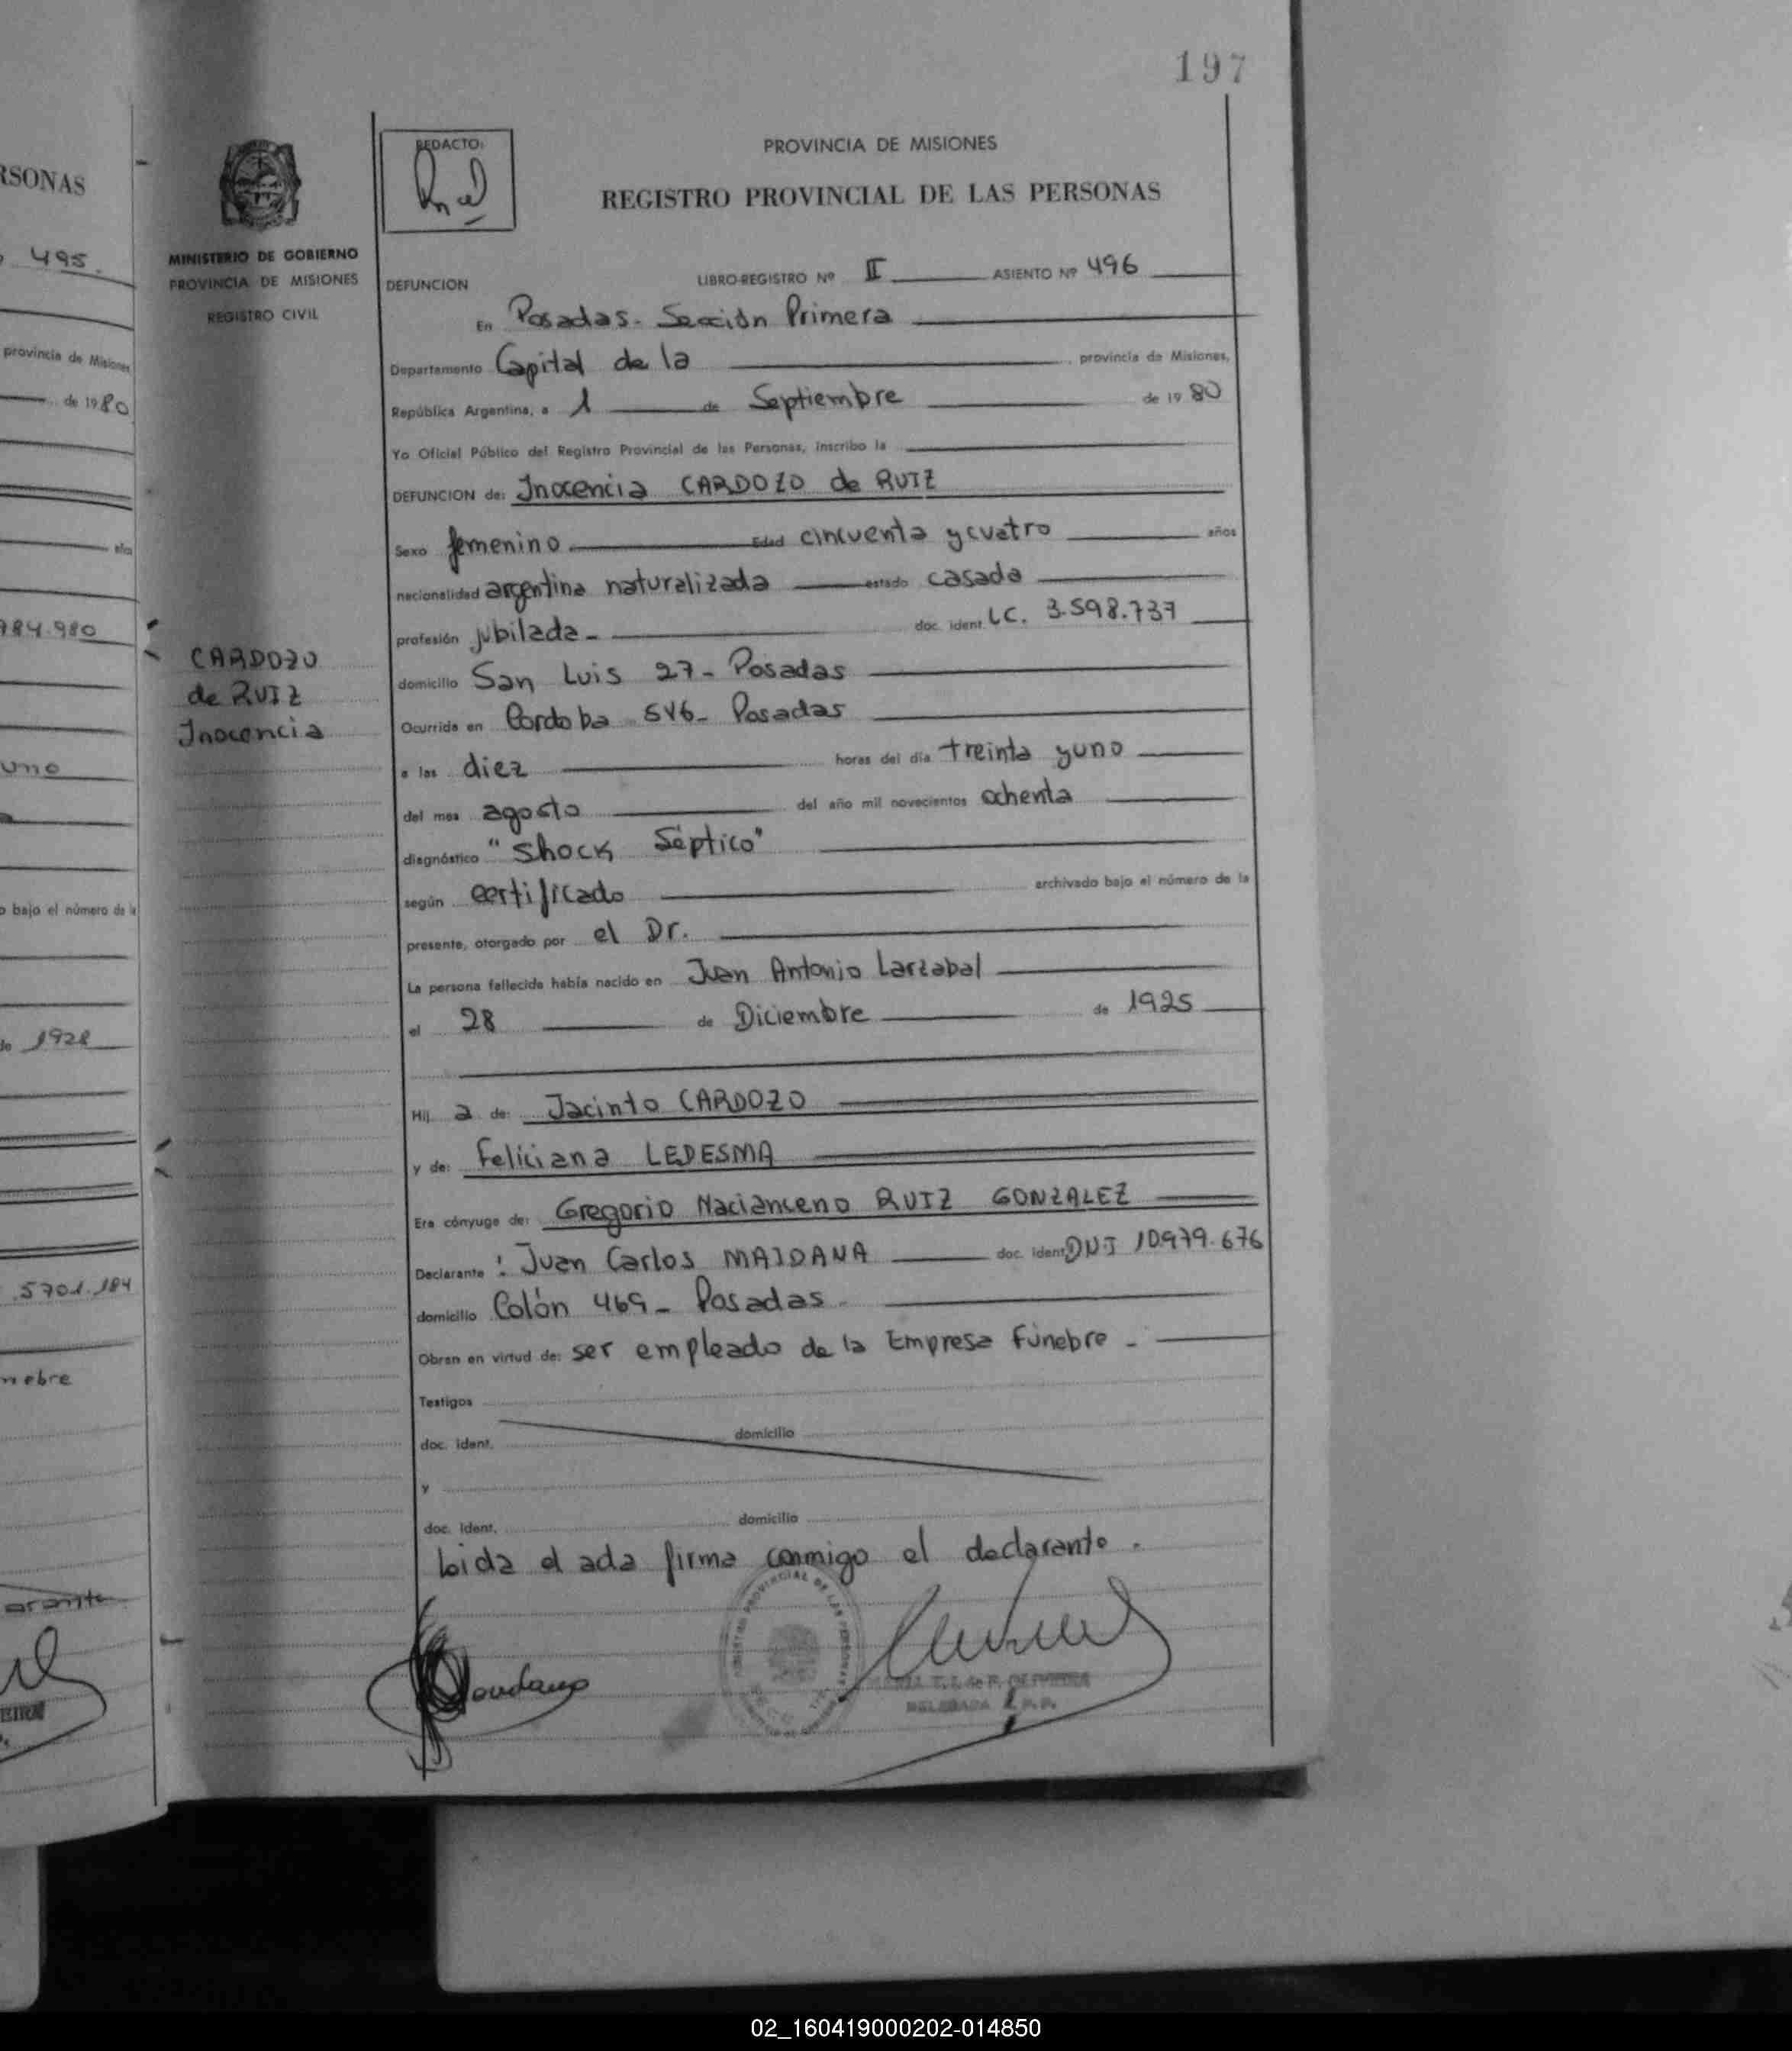 197
RSONAS
495.
provincia de Misiones
de 1980
años
984.980
uno
o bajo el número de la
de 1928
5701.184
nebre
MINISTERIO DE GOBIERNO
PROVINCIA DE MISIONES
REGISTRO CIVIL
CARDOZO
de RUIZ
Inocencia
REDACTO:
PROVINCIA DE MISIONES
REGISTRO PROVINCIAL DE LAS PERSONAS
DEFUNCION LIBRO-REGISTRO Nº II ASIENTO Nº 496
En Posadas - Sección Primera
Departamento Capital de la provincia de Misiones,
República Argentina, a 1 de Septiembre de 1980
Yo Oficial Público del Registro Provincial de las Personas, inscribo la
DEFUNCION de: Inocencia CARDOZO de RUIZ
Sexo femenino Edad cincuenta y cuatro años
nacionalidad argentina naturalizada estado casada
profesión jubilada - doc. ident. LC. 3.598.737
domicilio San Luis 27 - Posadas
Ocurrida en Cordoba 546 - Posadas
a las diez horas del día treinta y uno
del mes agosto del año mil novecientos ochenta
diagnóstico "Shock Séptico"
según certificado archivado bajo el número de la
presente, otorgado por el Dr.
La persona fallecida había nacido en Juan Antonio Larzabal
el 28 de Diciembre de 1925
Hij a de: Jacinto CARDOZO
y de: Feliciana LEDESMA
Era cónyuge de: Gregorio Nacianceno RUIZ GONZALEZ
Declarante : Juan Carlos MAIDANA doc. ident DNI 10979.676
domicilio Colón 469 - Posadas -
Obran en virtud de: ser empleado de la Empresa Fúnebre -
Testigos
doc. ident. domicilio
y
doc. ident. domicilio
Leida el acta firma conmigo el declarante.
02_160419000202-014850